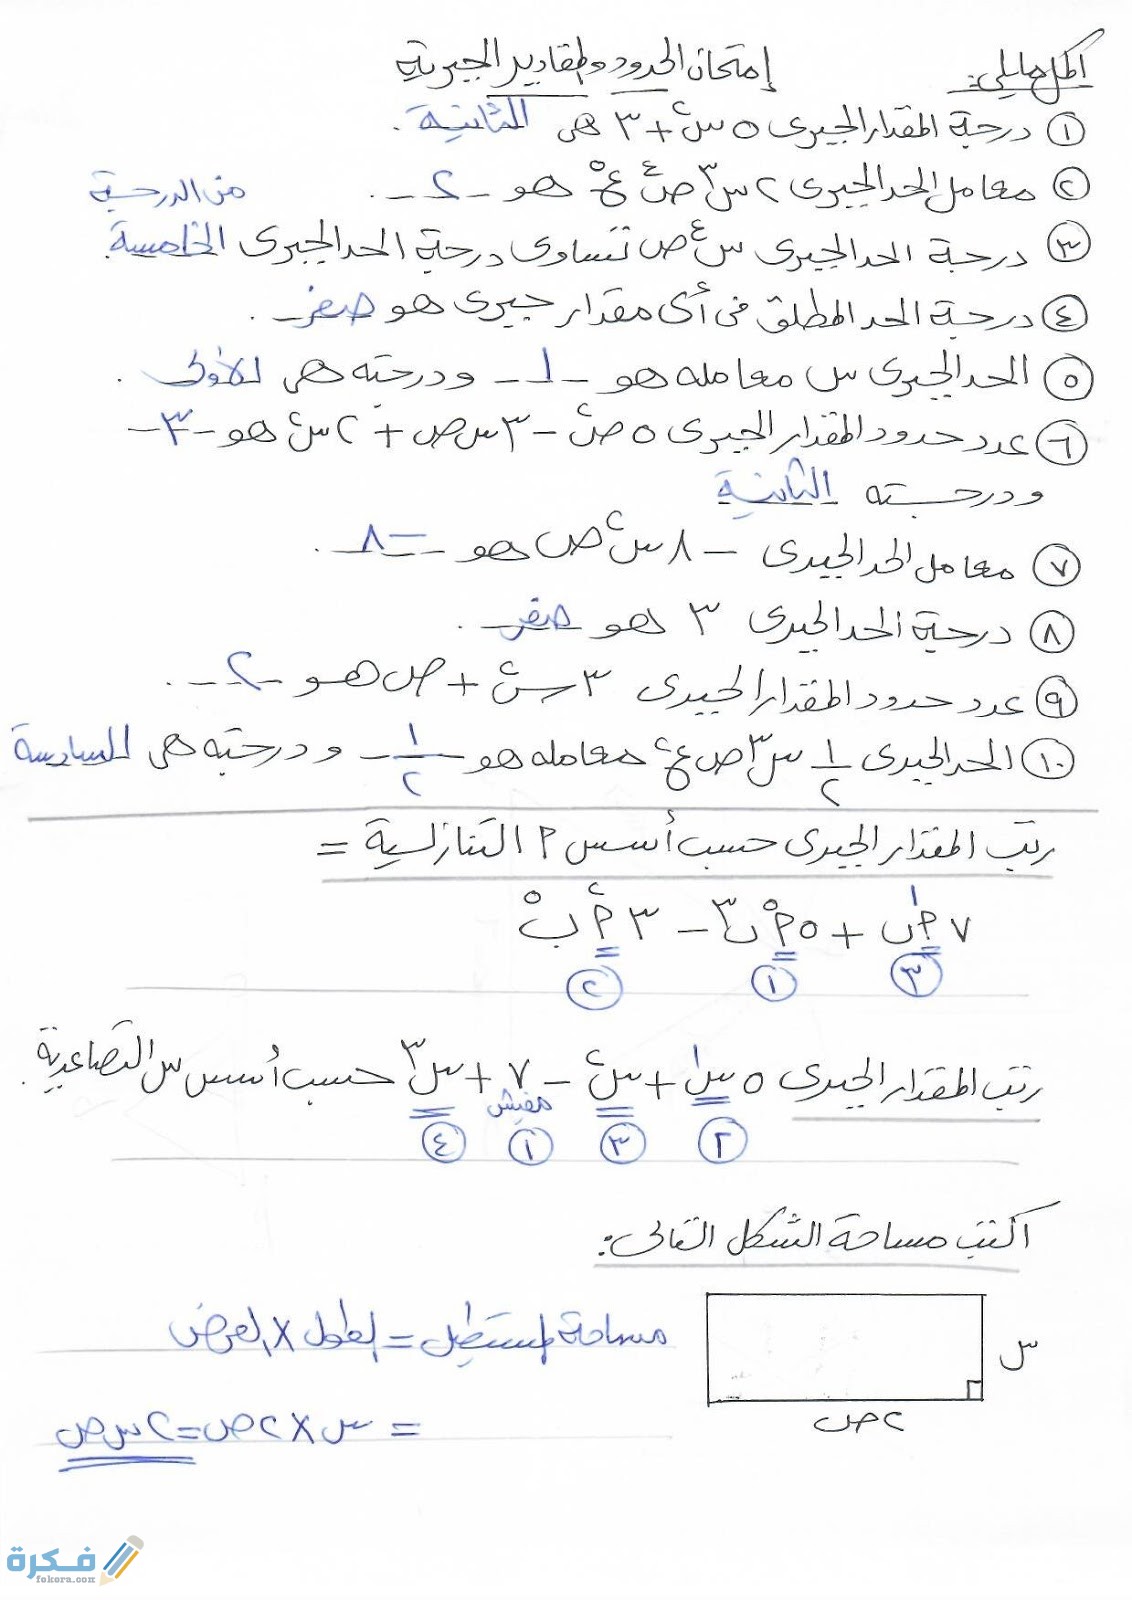 أكمل ما يلي: إمتحان الحدود والمقادير الجبرية
① درجة المقدار الجبرى ٥س٢ + ٣ هى الثانية .
② معامل الحد الجبرى ٢س٣ص٤ع٥ هو - ٢ - .
من الدرجة
③ درجة الحد الجبرى س٤ص تساوى درجة الحد الجبرى الخامسة .
④ درجة الحد المطلق فى أى مقدار جبرى هو صفر .
⑤ الحد الجبرى س معامله هو - ١ - ودرجته هى الأولى .
⑥ عدد حدود المقدار الجبرى ٥ص٢ - ٣س ص + ٢س٢ هو - ٣ -
ودرجته الثانية
⑦ معامل الحد الجبرى - ٨س٢ص هو - ٨ .
⑧ درجة الحد الجبرى ٣ هو صفر .
⑨ عدد حدود المقدار الجبرى ٣س٢ + ص هو - ٢ - .
⑩ الحد الجبرى ١/٢ س٣ص ع٢ معامله هو ١/٢ ودرجته هى السادسة
رتب المقدار الجبرى حسب أسس م التنازلية =
٧م١ب + ٥م٥ب٣ - ٣م٢ب٥
③ ① ②
رتب المقدار الجبرى ٥س١ + س٢ - ٧ + س٣ حسب أسس س التصاعدية .
مفيش
② ③ ① ④
اكتب مساحة الشكل التالى :
مساحة المستطيل = الطول × العرض
س
٢ص
= س × ٢ص = ٢س ص
فكرة
fokera.com